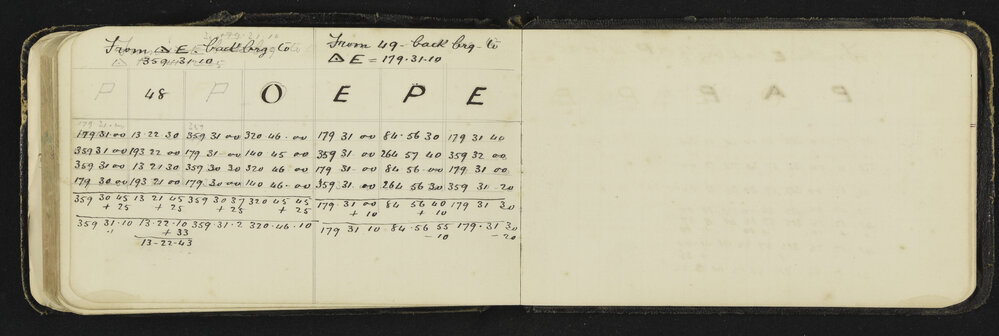 From △ E back brg to From 49 - back brg - to
△ 359 · 31 · 10 △ E = 179 · 31 · 10
P 48 P O E P E
179 31 00 13 · 22 30 359 31 00 320 46 · 00 179 31 00 84 · 56 30 179 31 40
359 31 00 193 22 00 179 31 · 00 140 45 00 359 31 · 00 264 57 40 359 32 00
359 31 00 13 21 30 359 30 30 320 46 00 179 31 · 00 84 56 · 00 179 31 00
179 30 00 193 21 00 179 30 00 140 46 · 00 359 31 · 00 264 56 30 359 31 - 20
359 30 45 13 21 45 359 30 37 320 45 45 179 · 31 00 84 56 40 179 31 30
+ 25 + 25 + 25 + 25 + 10 + 10
359 31 · 10 13 · 22 · 10 359 · 31 · 2 320 · 46 · 10 179 31 10 84 · 56 55 179 · 31 30
+ 33 - 10 - 20
13 - 22 - 43